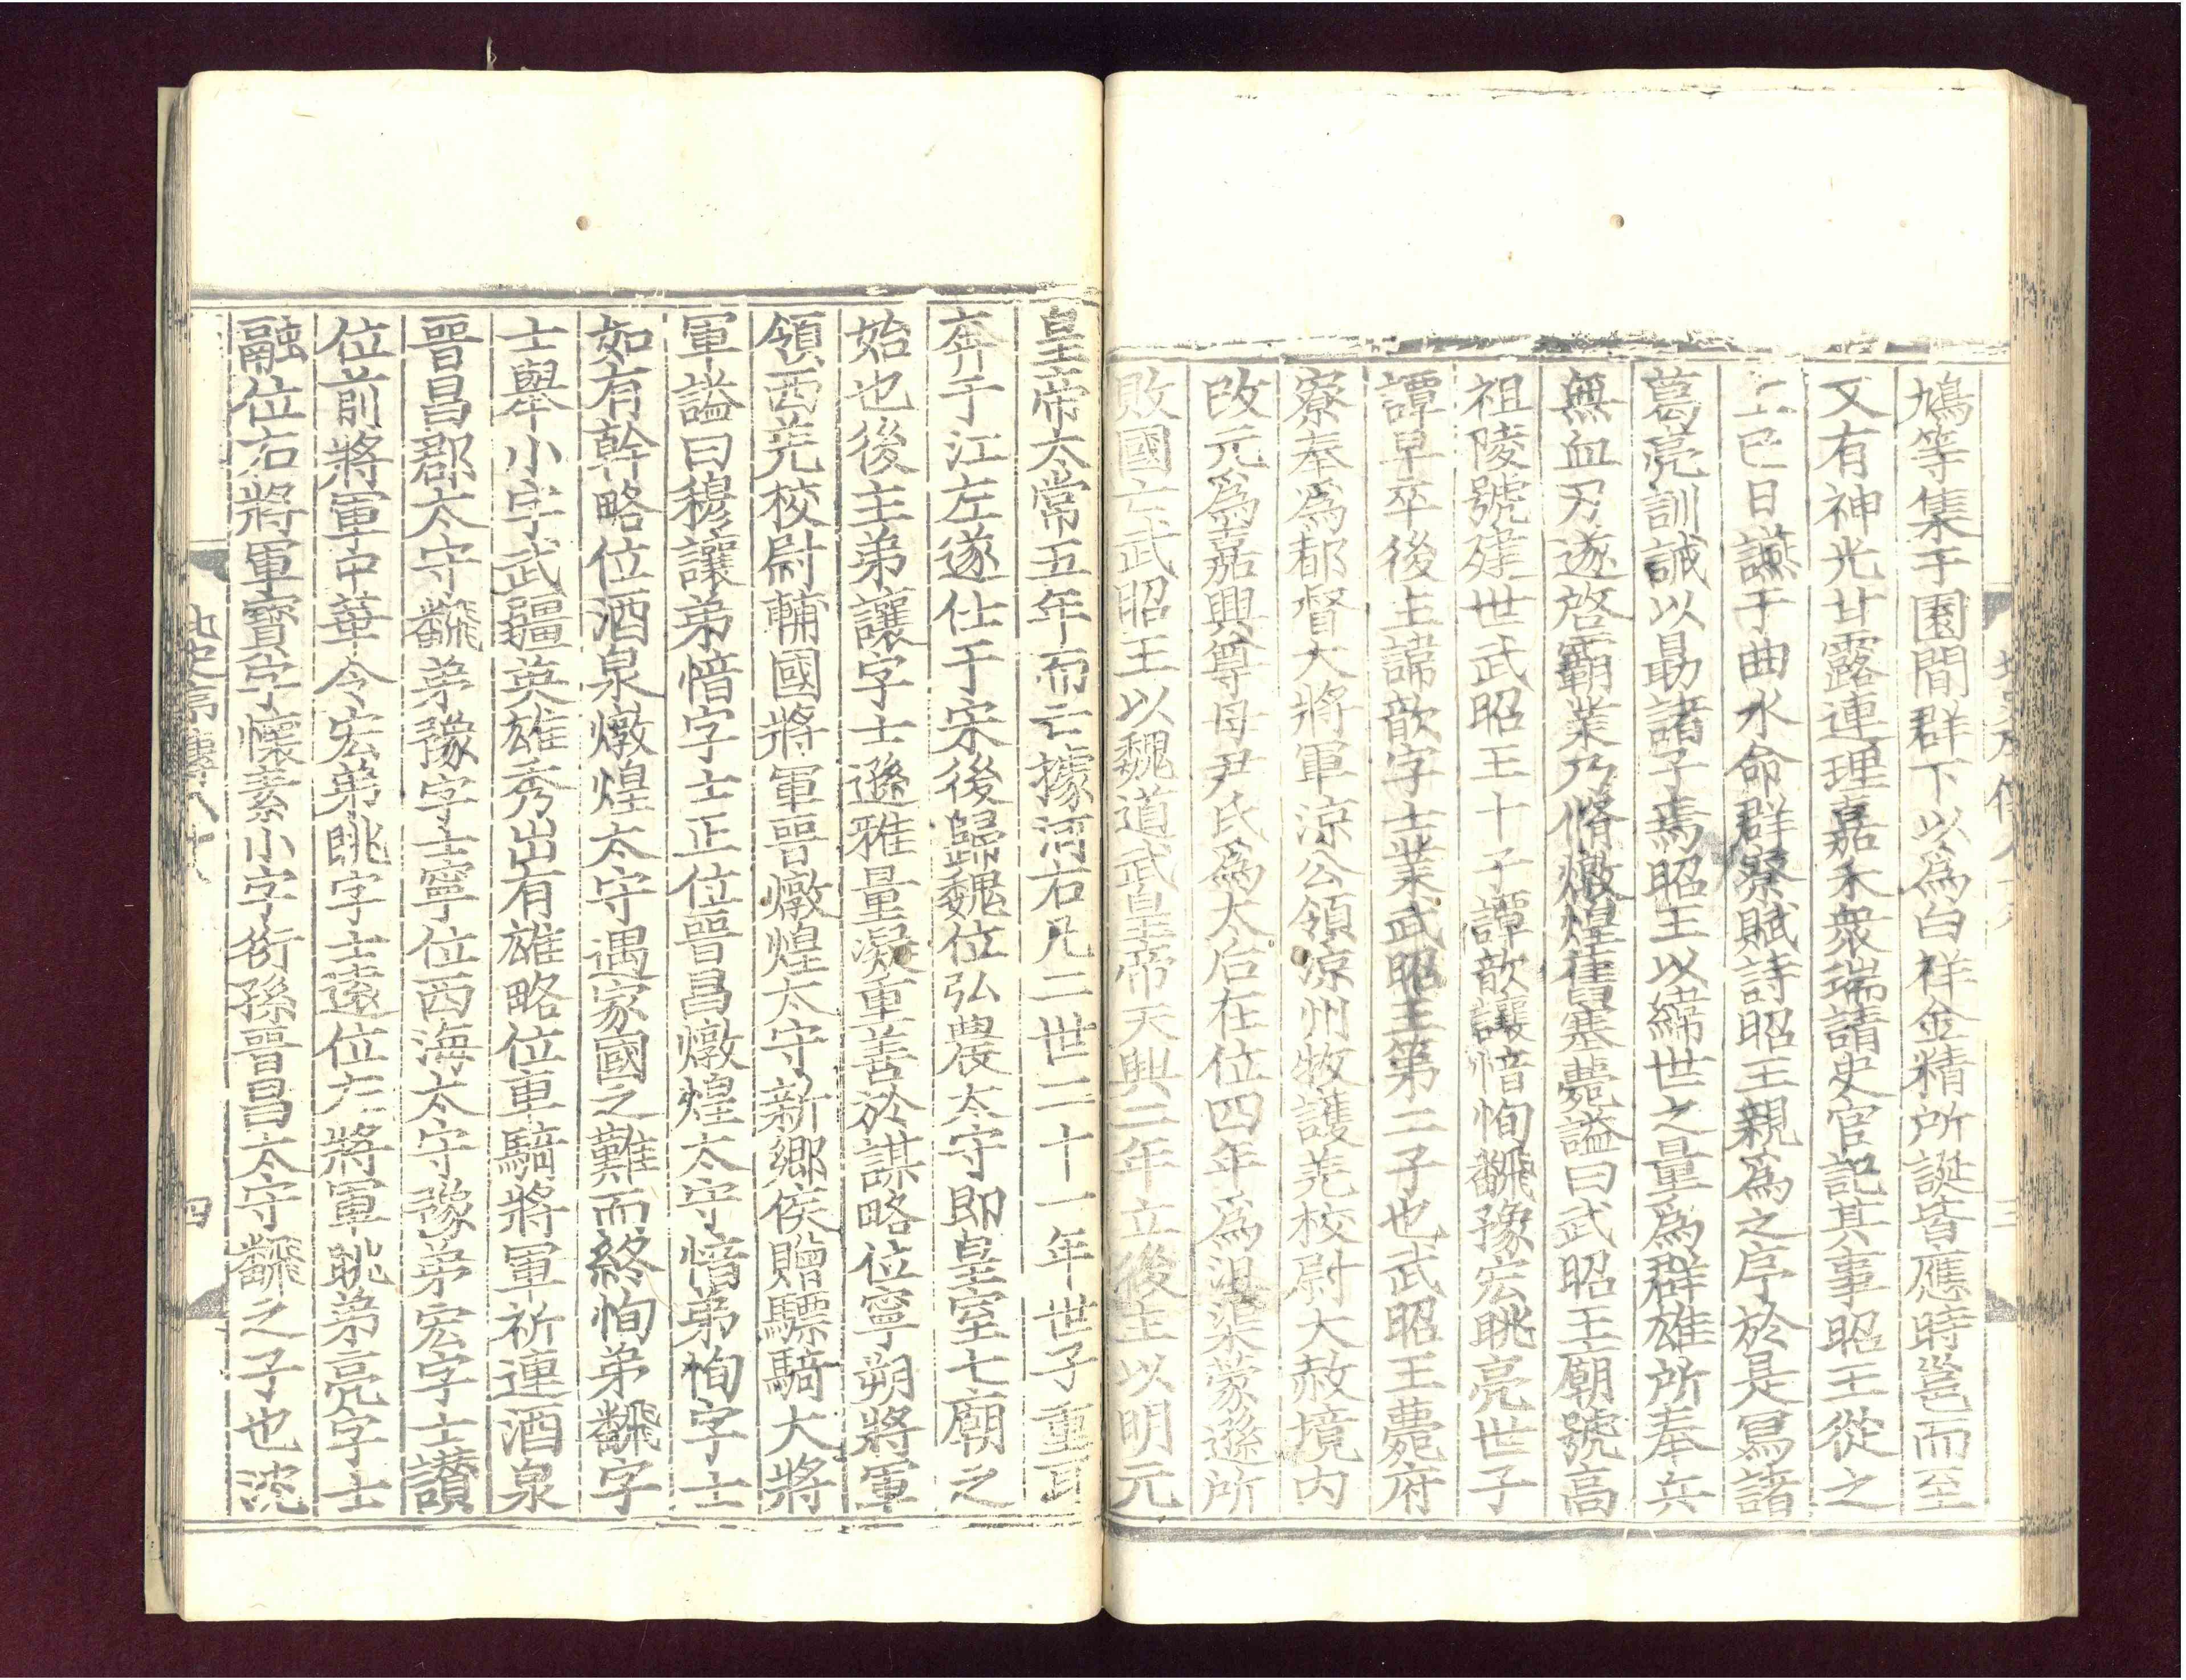 鳩等集于園間群下以為白祥金精所誕皆應時邕而至
又有神光甘露連理嘉禾衆瑞請史官記其事昭王從之
上巳日讌于曲水命群寮賦詩昭王親為之序於是寫諸
葛亮訓誡以勗諸子焉昭王以緯世之量為群雄所奉兵
無血刃遂啓霸業乃脩燉煌舊塞薨謚曰武昭王廟號高
祖陵號建世武昭王十子譚歆讓愔恂飜豫宏眺亮世子
譚早卒後主諱歆字士業武昭王第二子也武昭王薨府
寮奉為都督大將軍涼公領涼州牧護羌校尉大赦境内
改元為嘉興尊母尹氏為太后在位四年為沮渠蒙遜所
敗國亡武昭王以魏道武皇帝天興二年立後主以明元
皇帝太常五年而亡據河右凡二世二十一年世子重耳
奔于江左遂仕于宋後歸魏位弘農太守即皇室七廟之
始也後主弟讓字士遜雅量凝重善於謀略位寧朔將軍
領西羌校尉輔國將軍晉燉煌太守新鄉侯贈驃騎大將
軍謚曰穆讓弟愔字士正位晉昌燉煌太守愔弟恂字士
如有幹略位酒泉燉煌太守遇家國之難而終恂弟飜字
士舉小字武疆英雄秀出有雄略位車騎將軍祈連酒泉
晉昌郡太守飜弟豫字士寧位西海太守豫弟宏字士讚
位前將軍中華令宏弟眺字士遠位左將軍眺弟亮字士
融位右將軍寶字懷素小字衍孫晉昌太守飜之子也沈
北史序傳八十八
四